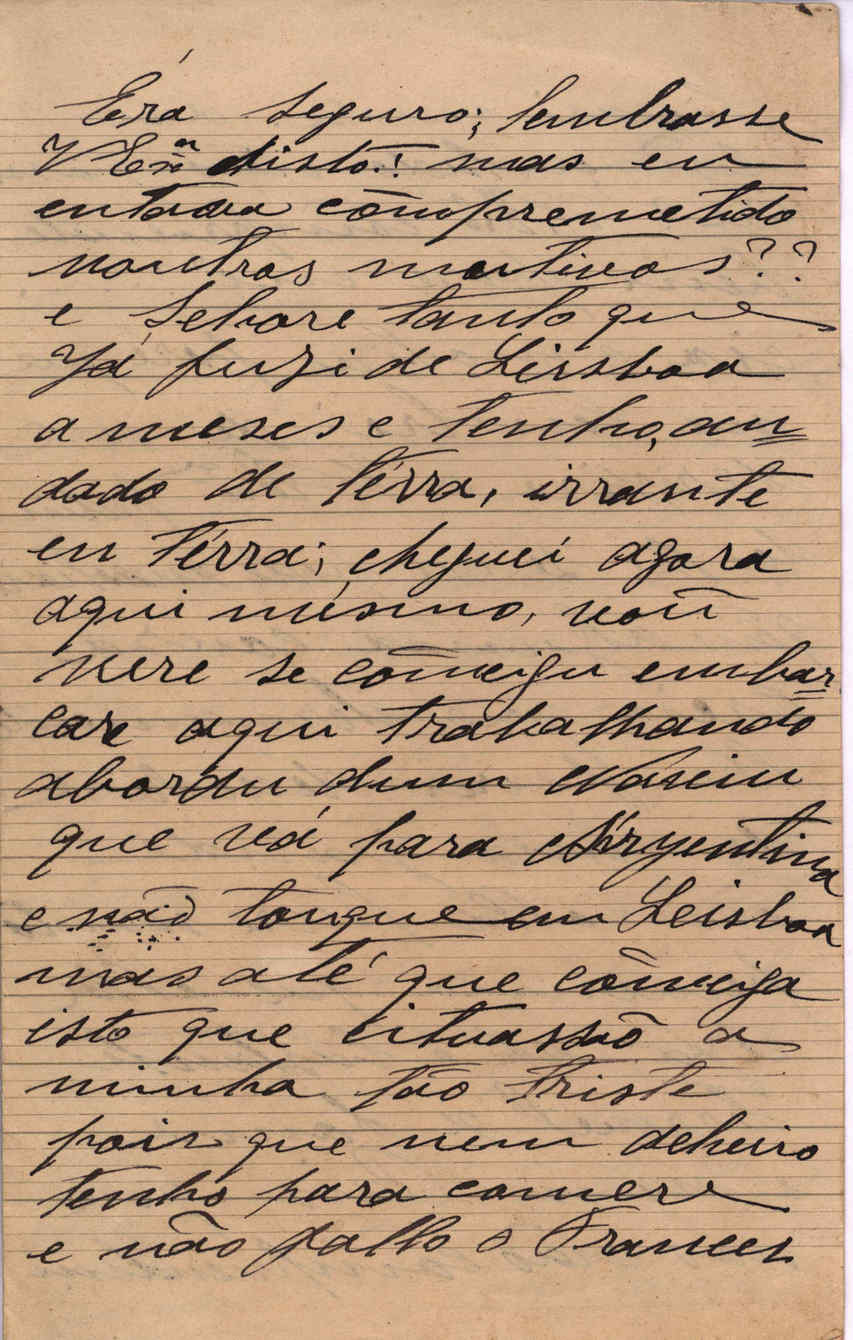 Éra seguro; lembrasse
VExª disto! mas eu
entava cõmpremetido
noutros mutivos??
e Sobre tanto que
Já fuzi de Leisboa
a meses e tenho, an=
dado de térra, irrante
en térra; cheguei agora
aqui mésmo, voũ
vere se cõncigu embar=
care aqui trabalhando
abordu dum Naviu
que vá para Árgentina
e não touque em Leisboa
mas até que cõnciga
isto que cituassaõ a
minha tão triste
pois que nem deheiro
tenho para comere
e não fallo o Frances